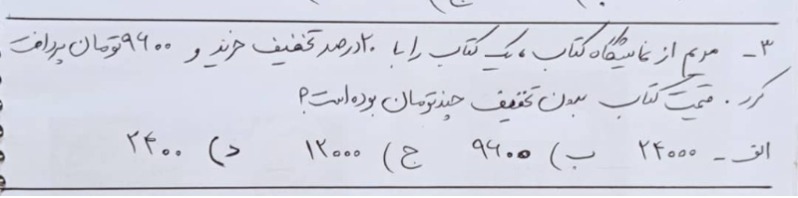 ۳- مریم از نمایشگاه کتاب، یک کتاب را با ۲۰ درصد تخفیف خرید و ۹۶۰۰ تومان پرداخت
کرد. قیمت کتاب بدون تخفیف چند تومان بوده است؟
الف - ۲۴۰۰۰ ب) ۹۶۰۰ ج) ۱۲۰۰۰ د) ۲۴۰۰